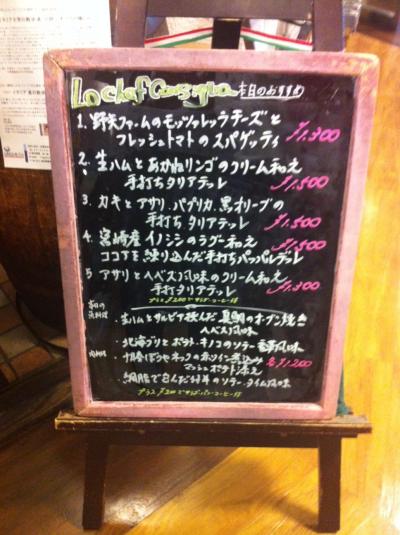 Lo chef Consiglia 本日のおすすめ
1. 野矢ファームのモッツァレッラチーズと
フレッシュトマトのスパゲッティ ¥1,300
2. 生ハムとあかねリンゴのクリーム和え
手打ちタリアテッレ ¥1,500
3. カキとアサリ、パプリカ、黒オリーブの
手打ちタリアテッレ ¥1,500
4. 宮崎産イノシシのラグー和え ¥1,500
ココアを練り込んだ手打ちパッパルデッレ
5 アサリとヘベス風味のクリーム和え
手打タリアテッレ ¥1,300
プラス ¥200でサラダ・コーヒー付
本日の
魚料理
・生ハムとサルビア挟んだ真鯛のオーブン焼き
ヘベス風味
・北海ブリとポテト・キノコのソテー 香草風味
肉料理
・十勝ぼうやネックの赤ワイン煮込み
マッシュポテト添え 各¥1,200
・網脂で包んだ仔羊のソテー タイム風味
プラス ¥200でサラダ・パン・コーヒー付